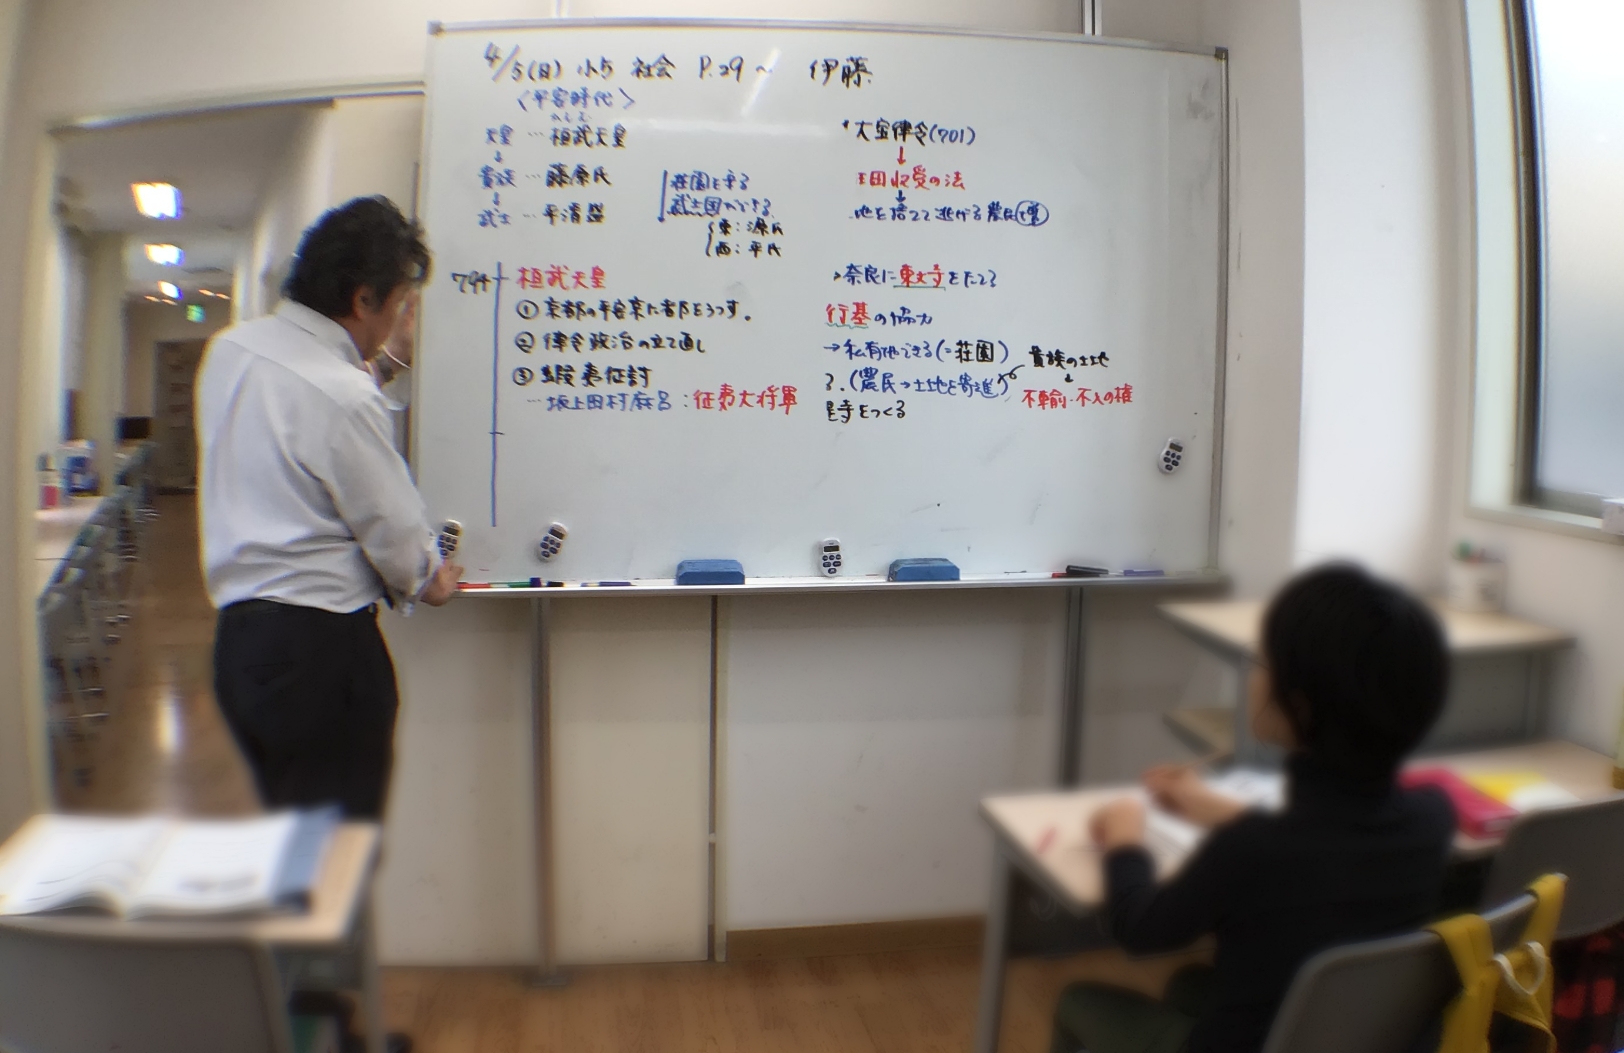 4/5(日) 小5 社会 P.29〜 伊藤
〈平安時代〉
かんむ
天皇 … 桓武天皇
↓
貴族 … 藤原氏
↓
武士 … 平清盛
荘園を守る
武士団ができる
東：源氏
西：平氏
794 桓武天皇
① 京都の平安京に都をうつす。
② 律令政治の立て直し
③ 蝦夷征討
… 坂上田村麻呂：征夷大将軍
大宝律令(701)
↓
田収受の法
↓
地を捨てて逃げる農民増
→奈良に東大寺をたてる
行基の協力
→私有地できる(=荘園)
る.(農民→土地を寄進)
貴族の土地
↓
不輸・不入の権
寺をつくる